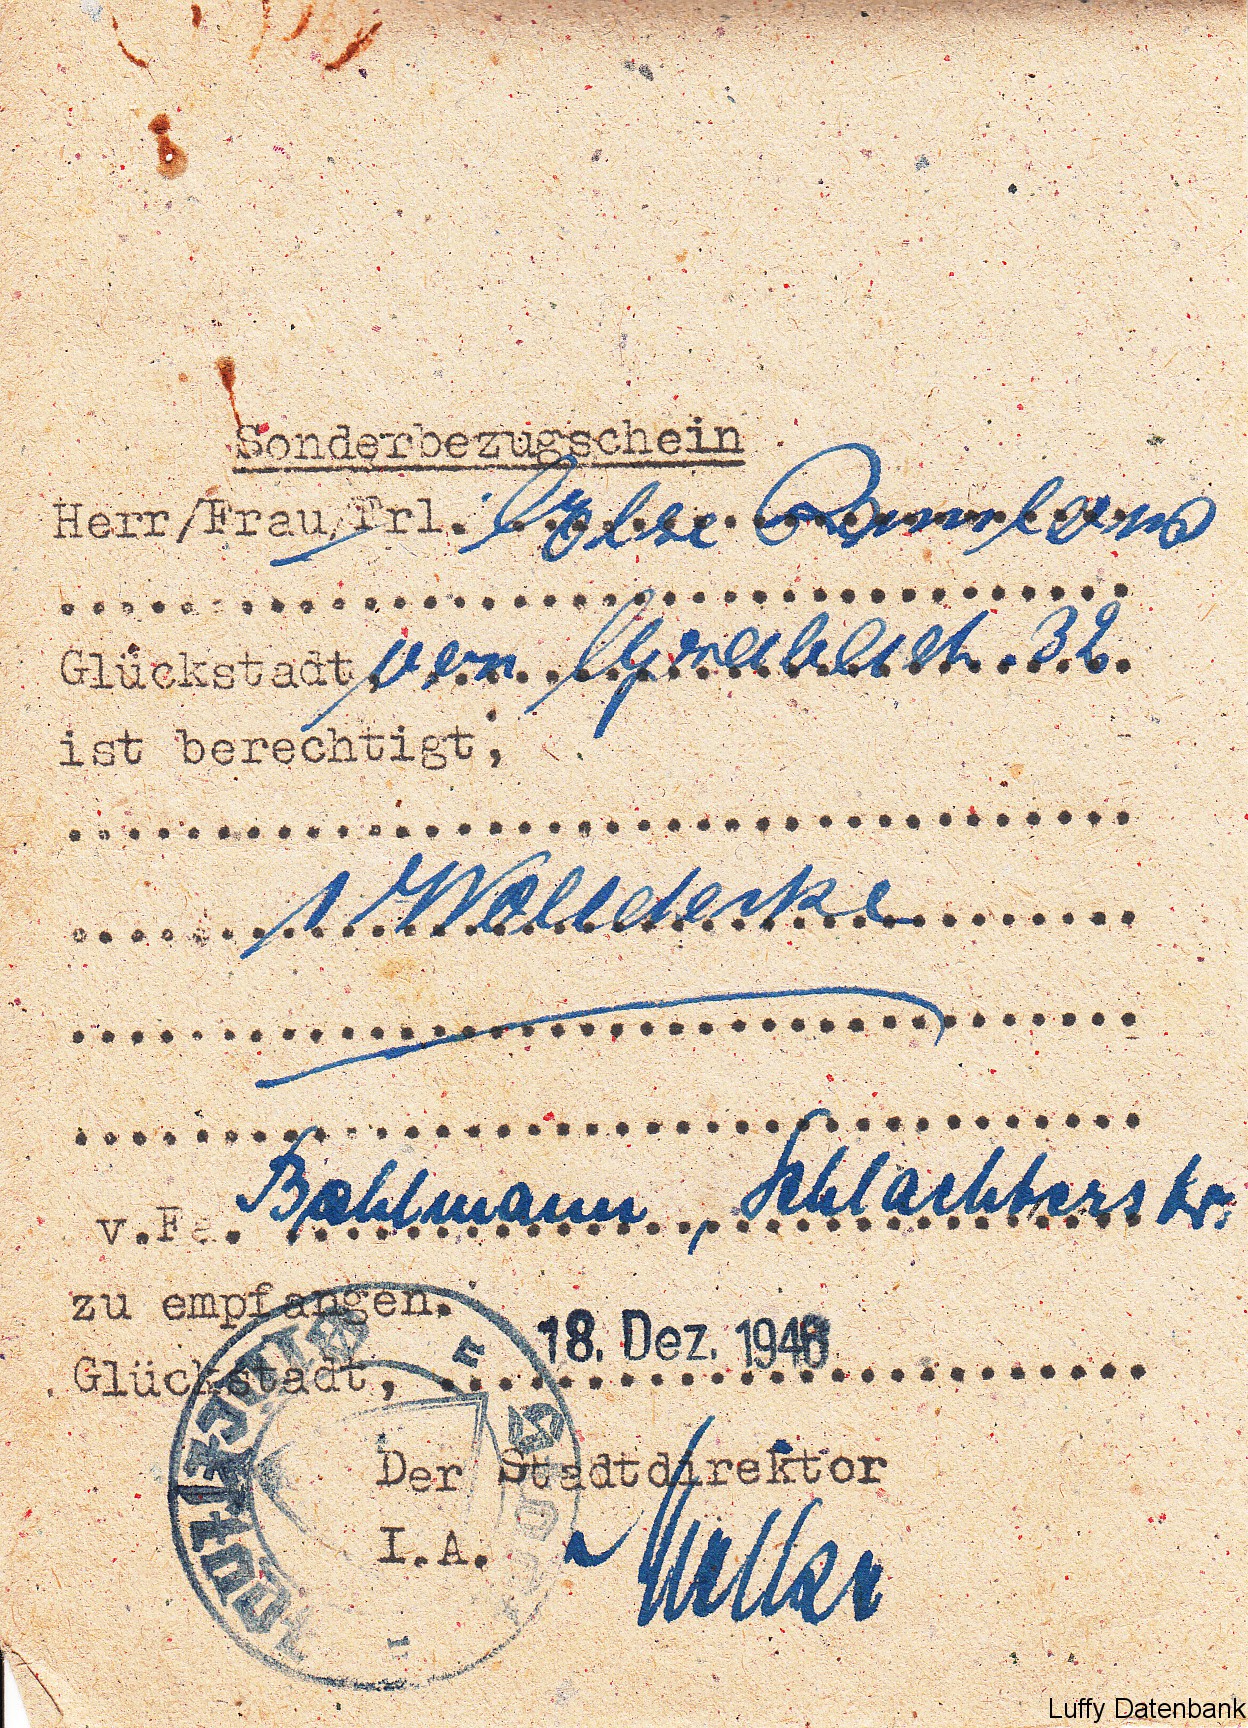 Sonderbezugschein
Herr/Frau/Frl. Ilse
Glückstadt, 32
ist berechtigt,
1 Wolldecke
v.Fa. Bohlmann, Schlachterstr.
zu empfangen.
Glückstadt, 18. Dez. 1946
Der Stadtdirektor
I.A.
Luffy Datenbank